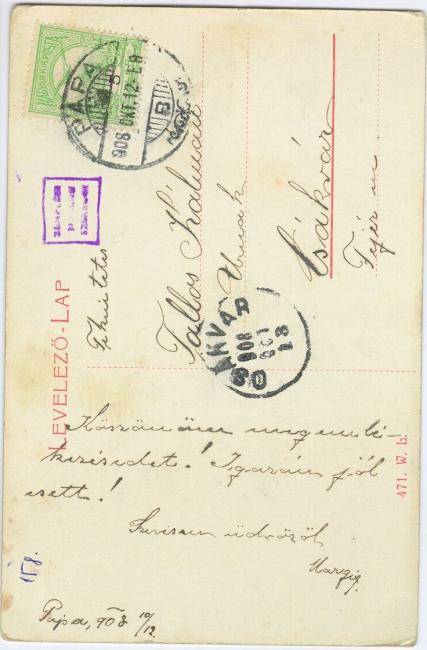 PÁPA
908 OKT. 12
B
LEVELEZŐ-LAP
Tekintetes
Tallos Kálmán
Urnak
Csákvár
Fejér m.
CSAKVAR
908
OKT
13
Köszönöm megemlé-
kezésedet! Igazán jól
esett!
Szivesen üdvözöl
Margit.
Pápa, 908 10/12.
471. W. b.